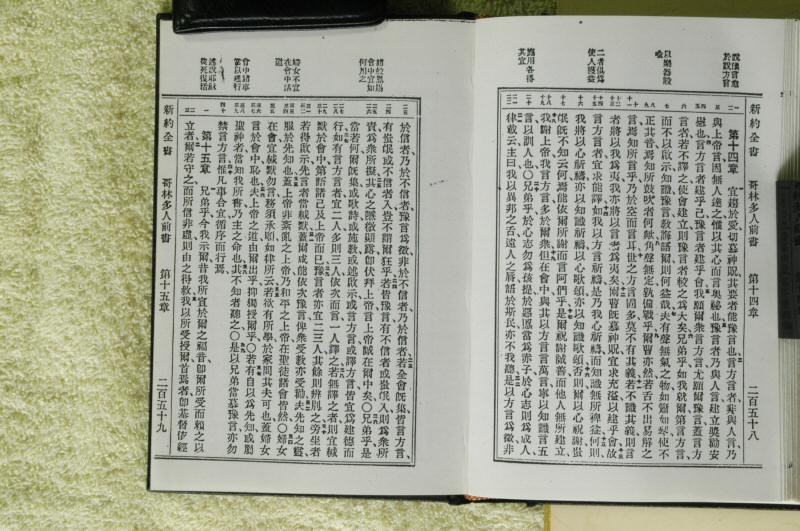 新約全書
哥林多人前書
第十四章
二百五十八
說預言愈於說方言
以樂器設喻
二者俱爲使人獲益
應用各得其宜
第十四章
宜趨於愛切慕神貺其要者能豫言也言方言者非與人言乃
與上帝言因無人達之惟以其心而言奧秘也豫言者乃與人言建立獎勸安
慰也言方言者建乎己豫言者建乎會我願爾衆言方言尤願爾豫言蓋言方
言者若不譯之使會建立則豫言者較之爲大矣兄弟乎如我就爾第言方言
而不以啟示知識豫言教誨語爾則何益哉夫有聲無氣之物如簫如琴使不
正其音焉知所鼓吹者何歟角聲無定孰備戰乎爾曹亦然若舌不出易解之
言焉知所言乎乃於空而言耳世之方言過多莫不有其義若不識其義則言
者將以我爲夷我亦將以言者爲夷矣爾曹既慕神貺宜求充溢以建乎會故
言方言者宜求能譯如我以方言祈禱是乃我心祈禱而知識無所裨益何則
我將以心祈禱亦以知識祈禱以心歌頌亦以知識歌頌否則爾以心祝謝蚩
氓既不知云何焉能依爾所謝而言阿們乎是爾祝謝誠善而他人無所建立
我謝上帝我言方言多於爾衆但在會中與其以方言言萬言寧以知識言五
言以訓人也〇兄弟乎於心志勿爲孩提於惡慝當爲赤子於心志則爲成人
律載云主曰我以異邦之舌遠人之脣語於斯民亦不我聽是以方言爲徵非
新約全書
哥林多人前書
第十五章
二百五十九
諸於恩賜會中宜如何用之
婦女不宜在會中語道
會中諸事當以理行
從死復活
於信者乃於不信者豫言爲徵非於不信者乃於信者若全會既集皆言方言
有蚩氓或不信者入豈不謂爾狂乎若皆豫言有不信者或蚩氓入則爲衆所
責爲衆所擬其心之隱微顯露即伏拜上帝言上帝誠在爾中矣〇兄弟乎是
若何爾既集或歌詩或施教或述啟示或言方言或譯方言皆宜爲建德而
行如有言方言者宜二人多則三人依次而言一人譯之若無譯者則宜緘
默於會中第語諸己及上帝而已豫言者亦宜二三人其餘則辨別之旁坐者
若得啟示先言者當緘默蓋爾咸能依次豫言俾衆受教亦受勸夫先知之靈
服於先知也蓋上帝非紊亂之上帝乃和平之上帝在聖徒諸會皆然〇婦女
在會宜緘默勿言務須承順如律所云若欲有所學於家間其夫可也蓋婦女
言於會中恥也夫上帝之道由爾出乎抑獨授爾乎〇若有自以爲先知或屬
聖神者當知我所書乃主之命也其不知者聽之〇是以兄弟當慕豫言亦勿
禁言方言惟凡事合宜循序而行焉
第十五章
兄弟乎今我示爾昔我所宜於爾之福音即爾所受而賴之以
立者爾若守之而所信非虛則由之得救我以所受授爾首焉者即基督依經